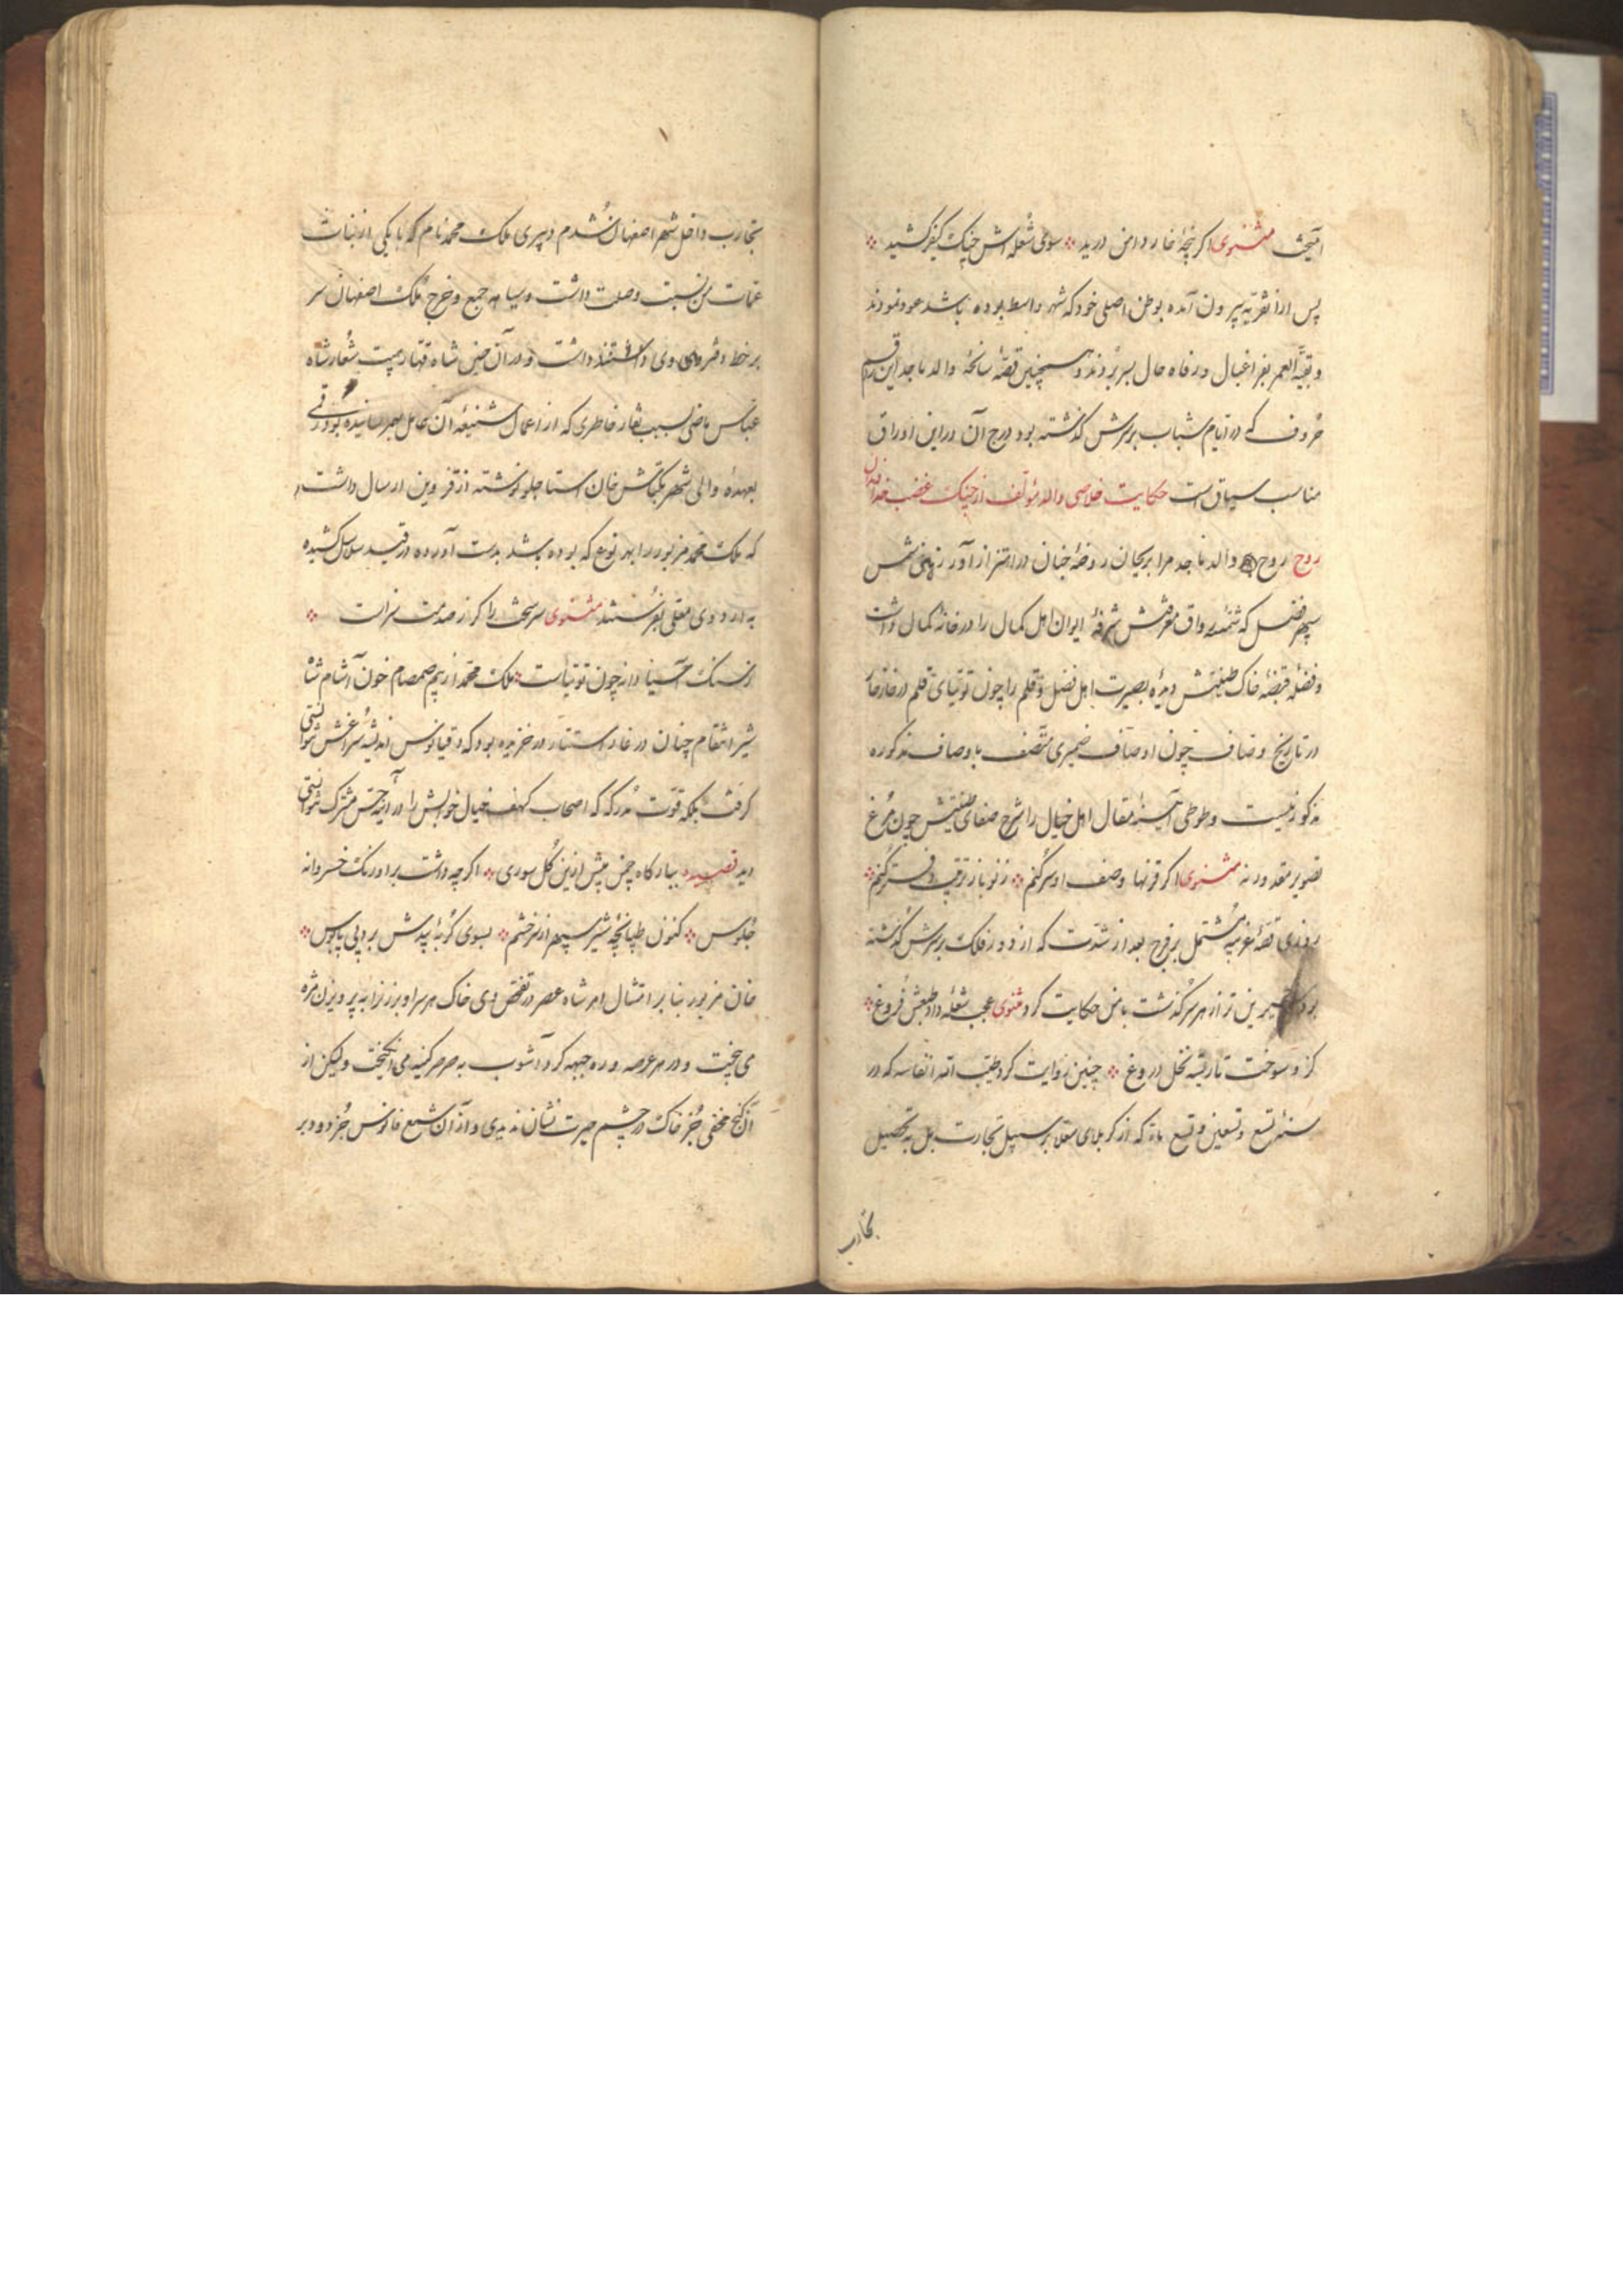 آمیخت مثنوی اگر پنجهٔ خار دامن درید سوی شعله‌اش چنگ کیفر کشید
پس از آن قریه بیرون آمده بوطن اصلی خود که شهر واسط بوده باشد عود نمودند
و بقیّة العمر بفراغبال و رفاه حال بسر بردند و همچنین قصّهٔ سانحهٔ والد ماجد این راقم
حروف که در ایّام شباب بر سرش گذشته بود درج آن در این اوراق
مناسب سیاق است حکایت خلاصی والد مؤلف از چنگ غضب
روح روح والد ماجد مرا بریحان روضهٔ جنان در اهتزاز آورد زهی
سپهر فضل که شمسهٔ رواق معرفتش شرفهٔ ایوان اهل کمال را در خانهٔ کمال داشت
و فضلهٔ قبضهٔ خاک طینتش دیدهٔ بصیرت اهل فضل و قلم را چون توتیای قلم در
در تاریخ وصاف چون اوصاف ضمیری متّصف باوصاف مذکوره
مذکور نیست و طوطی آیینهٔ مقال اهل خیال را شرح صفای طینتش چون مرغ
تصویر مقدور نه مثنوی اگر قرنها وصف او سر کنم ز نو باز ترتیب دفتر کنم
روزی قصّهٔ غریبهٔ مشتمل بر فرج بعد از شدّت که از دور فلک بر سرش گذشته
بود شیرین‌تر از هر سرگذشت با من حکایت کرد مثنوی عجب شعله داد طبعش فروغ
کزو سوخت تا ریشه نخل دروغ چنین روایت کرد طیّب الله انفاسه که در
سنهٔ تسع و تسعین و تسع مائه که از کربلای معلّا بر سبیل تجارت بل به تحصیل
تجارب
تجارب داخل شهر اصفهان شدم و پیری ملک محمد نام که با یکی از بنات
عمّات من نسبت وصلت داشت و سیاههٔ جمع و خرج ملک اصفهان سر
بر خط دفتر وی داشتند داشت و در آن حین شاه قهّار هیبت شعار شاه
عباس ماضی بسبب نقار خاطری که از اعمال شنیعهٔ آن عامل بهم رسانیده بود رقمی
بعهدهٔ والی شهر بکتاش خان استاجلو نوشته از قزوین ارسال داشت
که ملک محمد مزبور را بهر نوع که بوده باشد بدست آورده در قید سلاسل کشیده
به اردوی معلی بفرستند مثنوی سر سخت را گرز صدمت سزاست
ز سنگ آسیا دانه چون توتیاست ملک محمد از بیم صمصام خون آشام شاه
شیر انتقام چنان در غار استتار در خزیده بود که دقیانوس اندیشه سراغش نتوانستی
گرفت بلکه قوّت مدرکه که اصحاب کهف خیال خوابش را در آیینهٔ حسّ مشترک نتوانستی
دید قصیده ببارگاه چمن پیش ازین گل سوری اگرچه داشت بر اورنگ خسروانه
جلوس کنون طپانچهٔ شیر سپهر از سر خشم بسوی گربهٔ بیدش برد پی پابوس
خان مزبور بنا بر امتثال امر شاه عصر در تفحّص وی خاک هر سرا و برزن را به پرویزن مژه
می‌بیخت و در هر عرصه و ره جبهه گرد آشوب به صرصر کینه می‌انگیخت و لیکن از
آن گنج مخفی جز خاک در چشم حیرت نشان ندیدی و از آن شمع فانوس جز دود بر